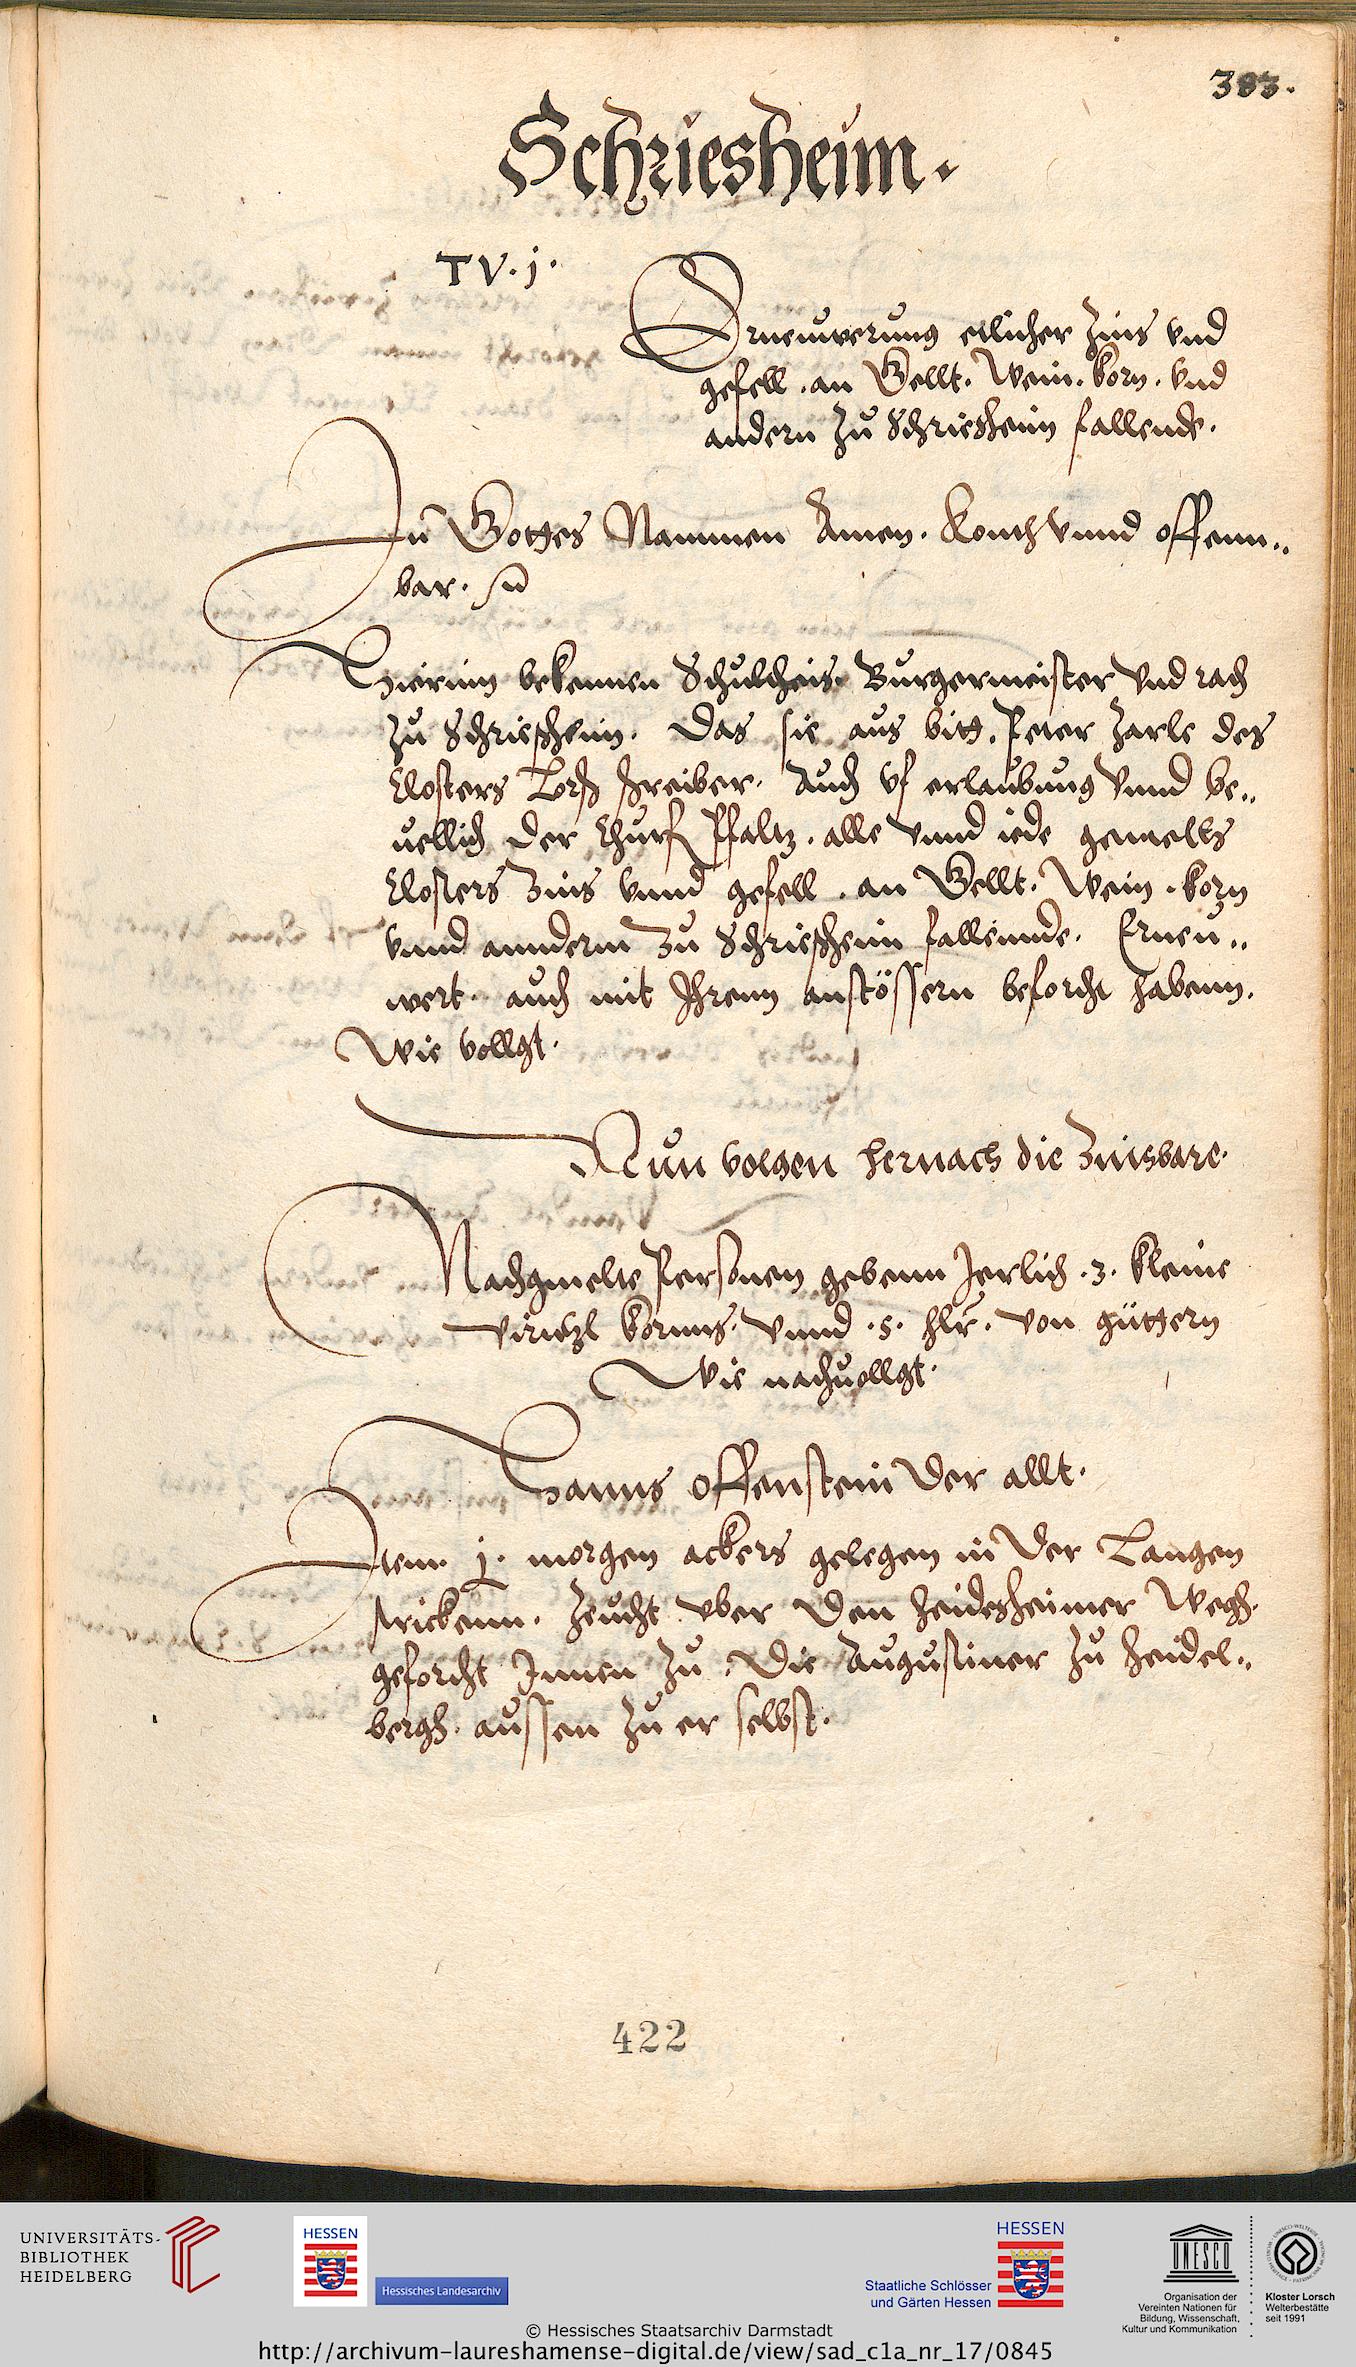 383.
Schriesheim.
TV. j.
Ernewerung etlicher Zins vnd
gefell. an Gellt. Wein. korn. vnd
andern zu Schriesheim fallende.
In Gottes Nammen Amen. Konth vnnd offenn„
bar.
Hierinn bekennen Schultheis. Burgermeister vnd rath
zu Schriesheim. Das sie aus bitt. Peter Zarle des
Closters Lorsch schreiber. Auch vf erlaubung vnnd be„
uellich der Churf Pfaltz. alle vnnd iede gemelts
Closters Zins vnnd gefell. an Gellt. Wein. korn
vnnd annderm zu Schriesheim fallennde. Erneu„
wert. auch mit Ihrenn anstössern beforcht habenn.
Wie vollgt.
Nun volgen hernach die Zinsbare.
Nachgmelte Personen gebenn Jerlich .3. kleine
virnzl kornns. vnnd .5. hlr. von güttern
Wie nachuollgt.
Hanns Offenstein Der allt.
Item j. morgen ackers gelegen in Der Langen
strickenn. Zeucht vber Den heidesheimer Wegh.
geforcht Innen zu. Die Augustiner zu heidel„
bergh. aussen zu er selbst.
422
UNIVERSITÄTS-
BIBLIOTHEK
HEIDELBERG
HESSEN
Hessisches Landesarchiv
HESSEN
Staatliche Schlösser
und Gärten Hessen
UNESCO
Organisation der
Vereinten Nationen für
Bildung, Wissenschaft,
Kultur und Kommunikation
Kloster Lorsch
Welterbestätte
seit 1991
© Hessisches Staatsarchiv Darmstadt
http://archivum-laureshamense-digital.de/view/sad_c1a_nr_17/0845